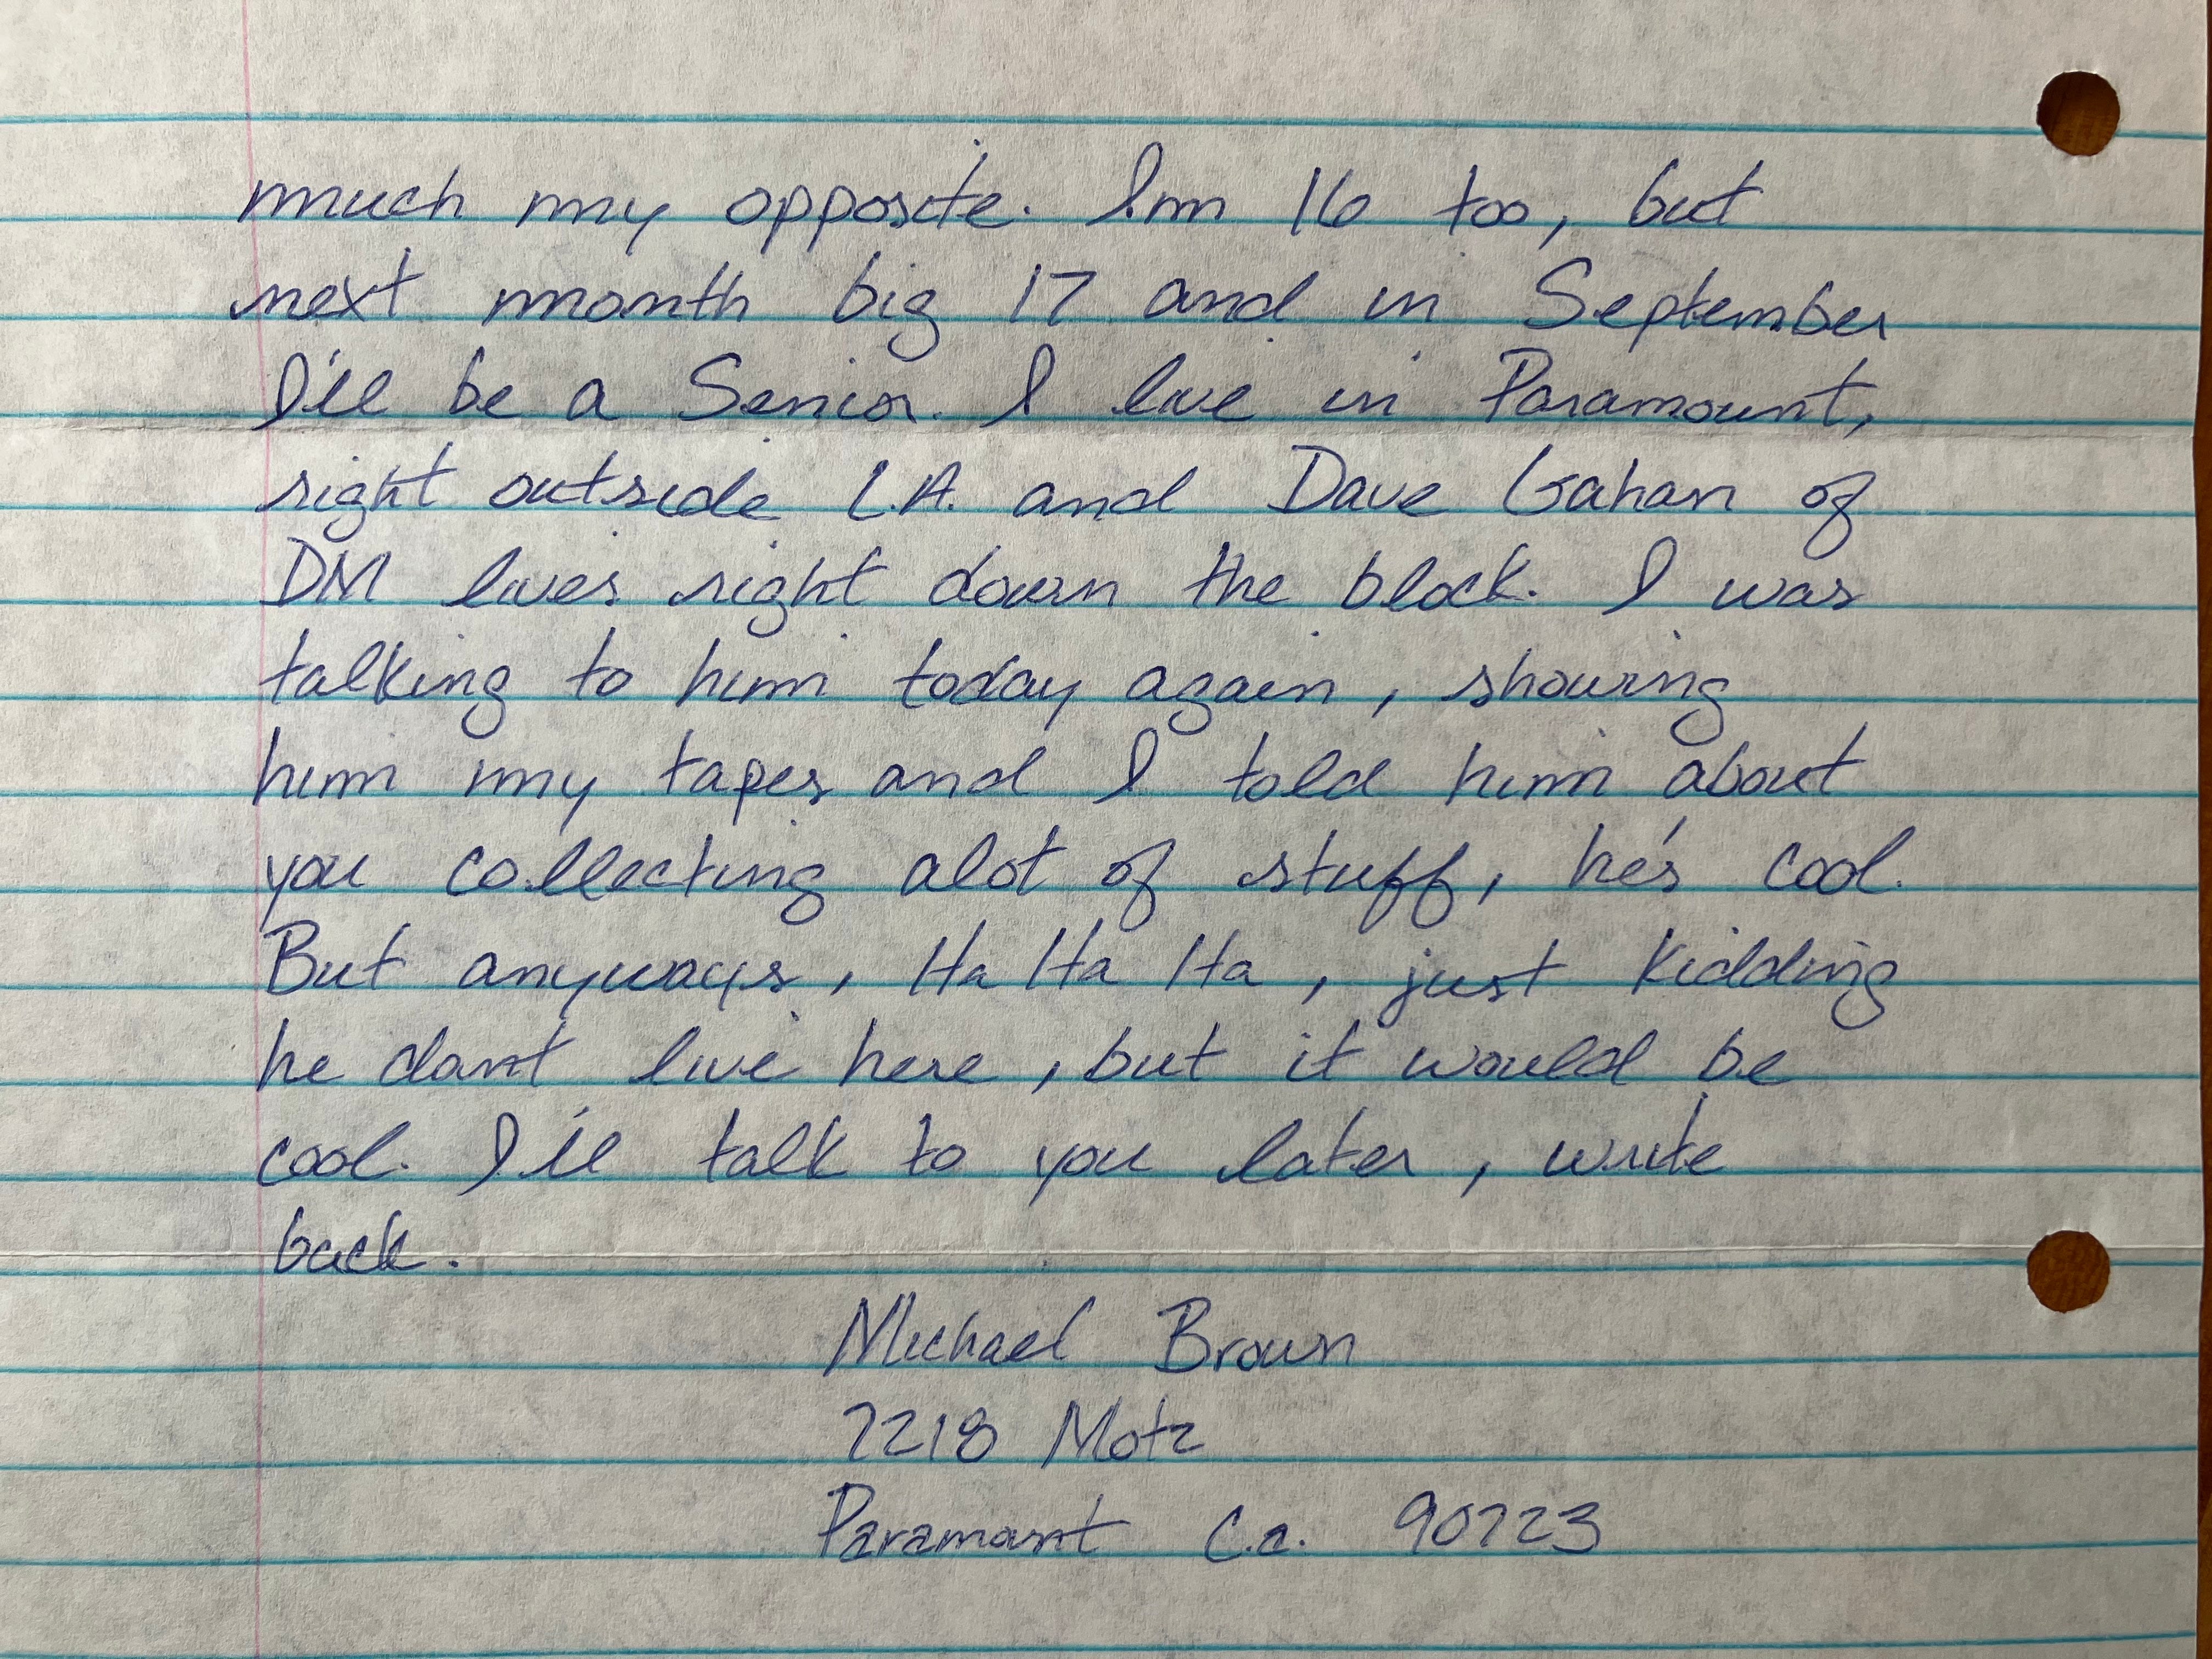 much my opposite. I'm 16 too, but
next month big 17 and in September
I'll be a Senior. I live in Paramount,
right outside L.A. and Dave Gahan of
DM lives right down the block. I was
talking to him today again, showing
him my tapes and I told him about
you collecting alot of stuff, he's cool.
But anyways, Ha Ha Ha, just kidding
he dont live here, but it would be
cool. I'll talk to you later, write
back.
Michael Brown
7218 Motz
Paramont Ca. 90723